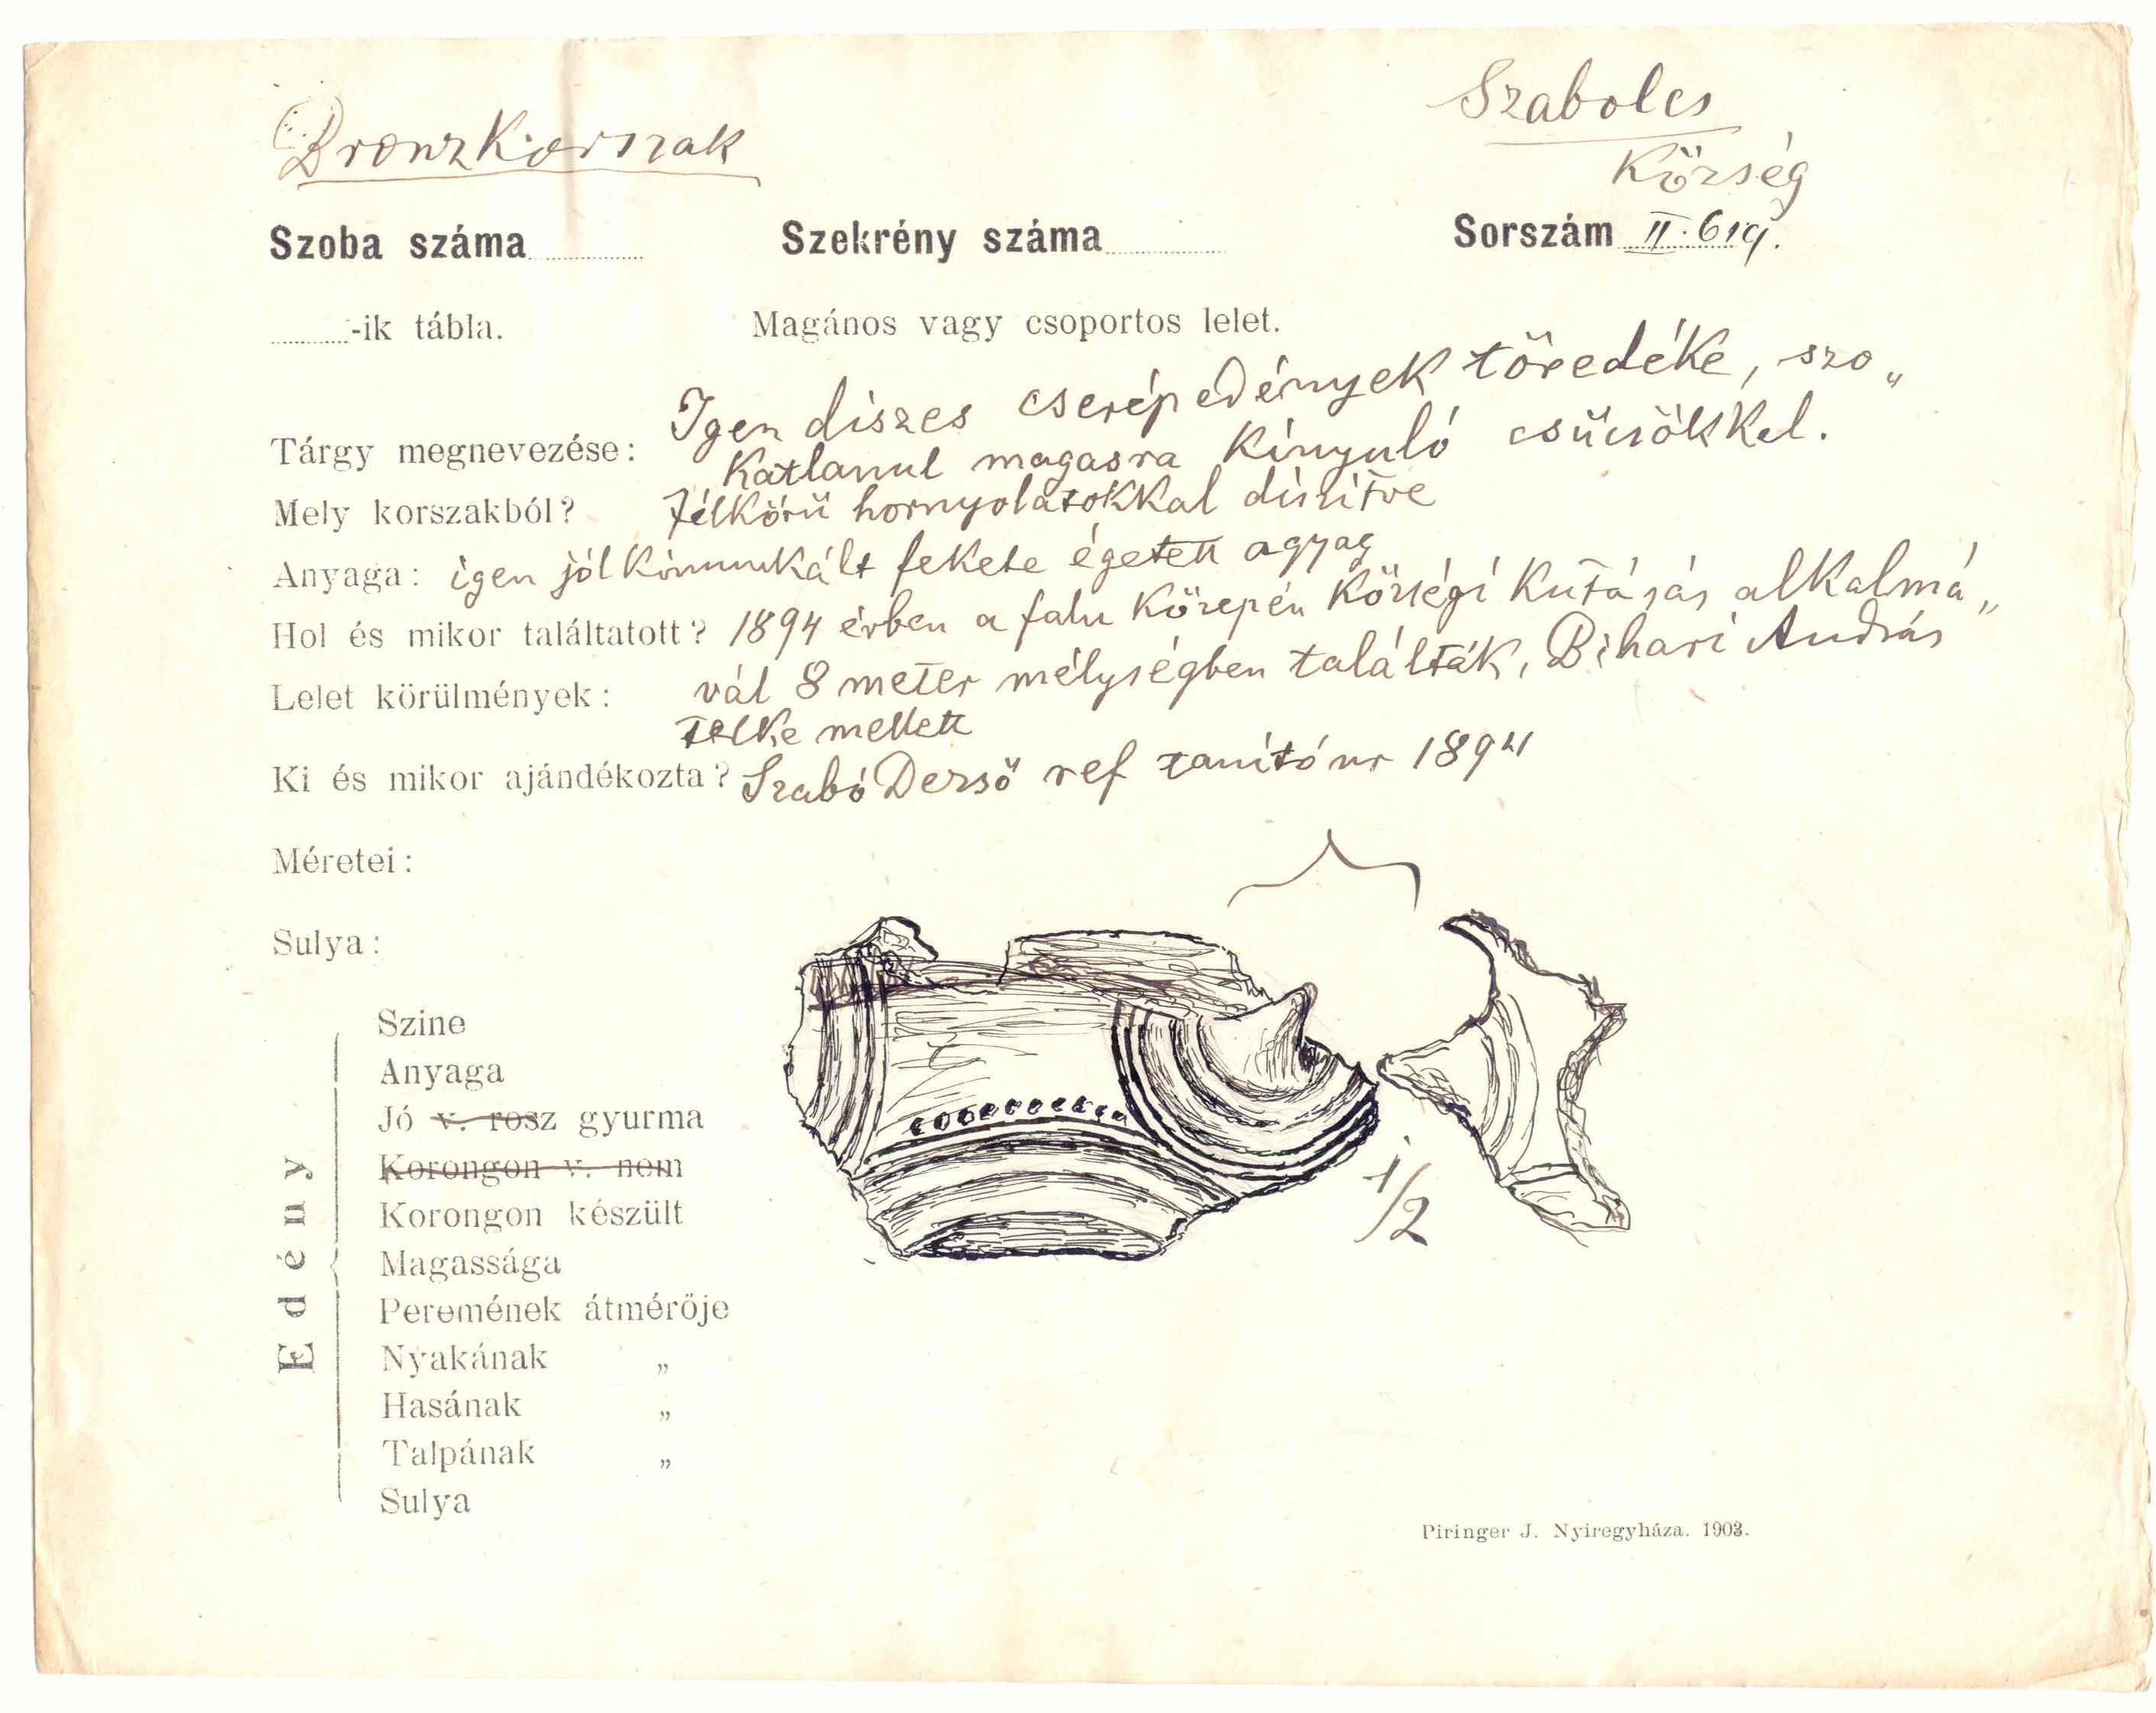 Bronzkorszak
Szabolcs
Község
Szoba száma Szekrény száma Sorszám II. 619.
-ik tábla. Magános vagy csoportos lelet.
Tárgy megnevezése: Igen diszes cserépedények töredéke, szo„
katlanul magasra kinyuló csücsökkel.
Mely korszakból? félkörü hornyolatokkal diszitve
Anyaga: igen jól kimunkált fekete égetett agyag
Hol és mikor találtatott? 1894 évben a falu közepén községi kutásás alkalmá„
Lelet körülmények: vál 8 meter mélységben találták, Bihari András
telke mellett
Ki és mikor ajándékozta? Szabó Dezső ref tanító ur 1894
Méretei:
Sulya:
Edény
Szine
Anyaga
Jó v. rosz gyurma
Korongon v. nem
Korongon készült
Magassága
Peremének átmérője
Nyakának „
Hasának „
Talpának „
Sulya
1/2
Piringer J. Nyiregyháza. 1903.